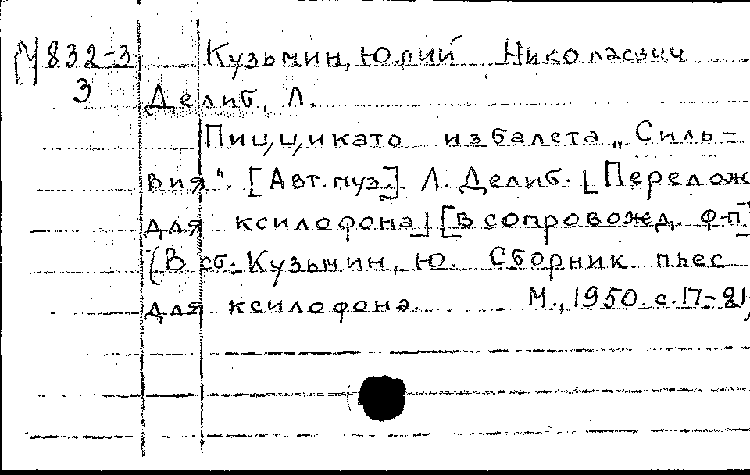 М832-3 Кузьмин, Юрий Николаевич
3 Делиб, Л.
Пиццикато из балета „Силь-
вия". [Авт. муз.] Л. Делиб. [Перелож
для ксилофона] [в сопровожд. ф-п]
(В сб.: Кузьмин, Ю. Сборник пьес
для ксилофона. М., 1950. с. 17-21,